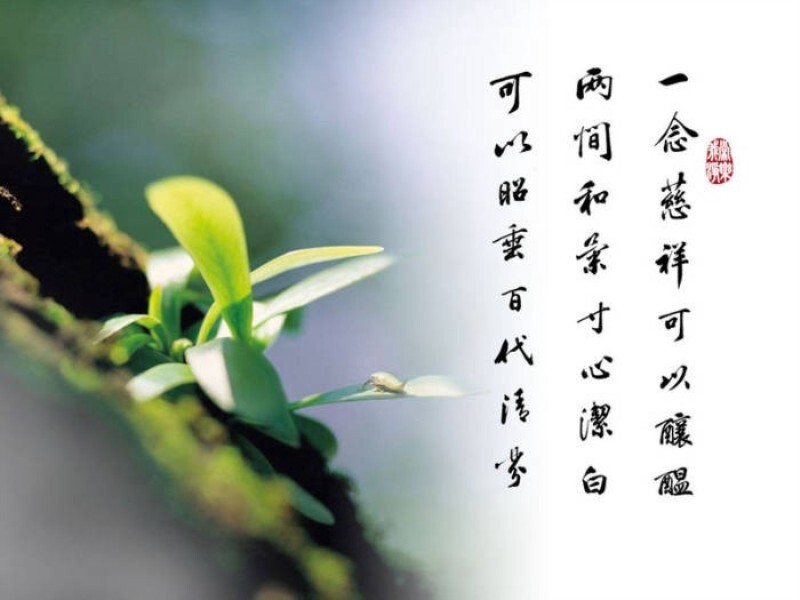 一念慈祥可以釀醞
两間和氣寸心潔白
可以昭垂百代清芬